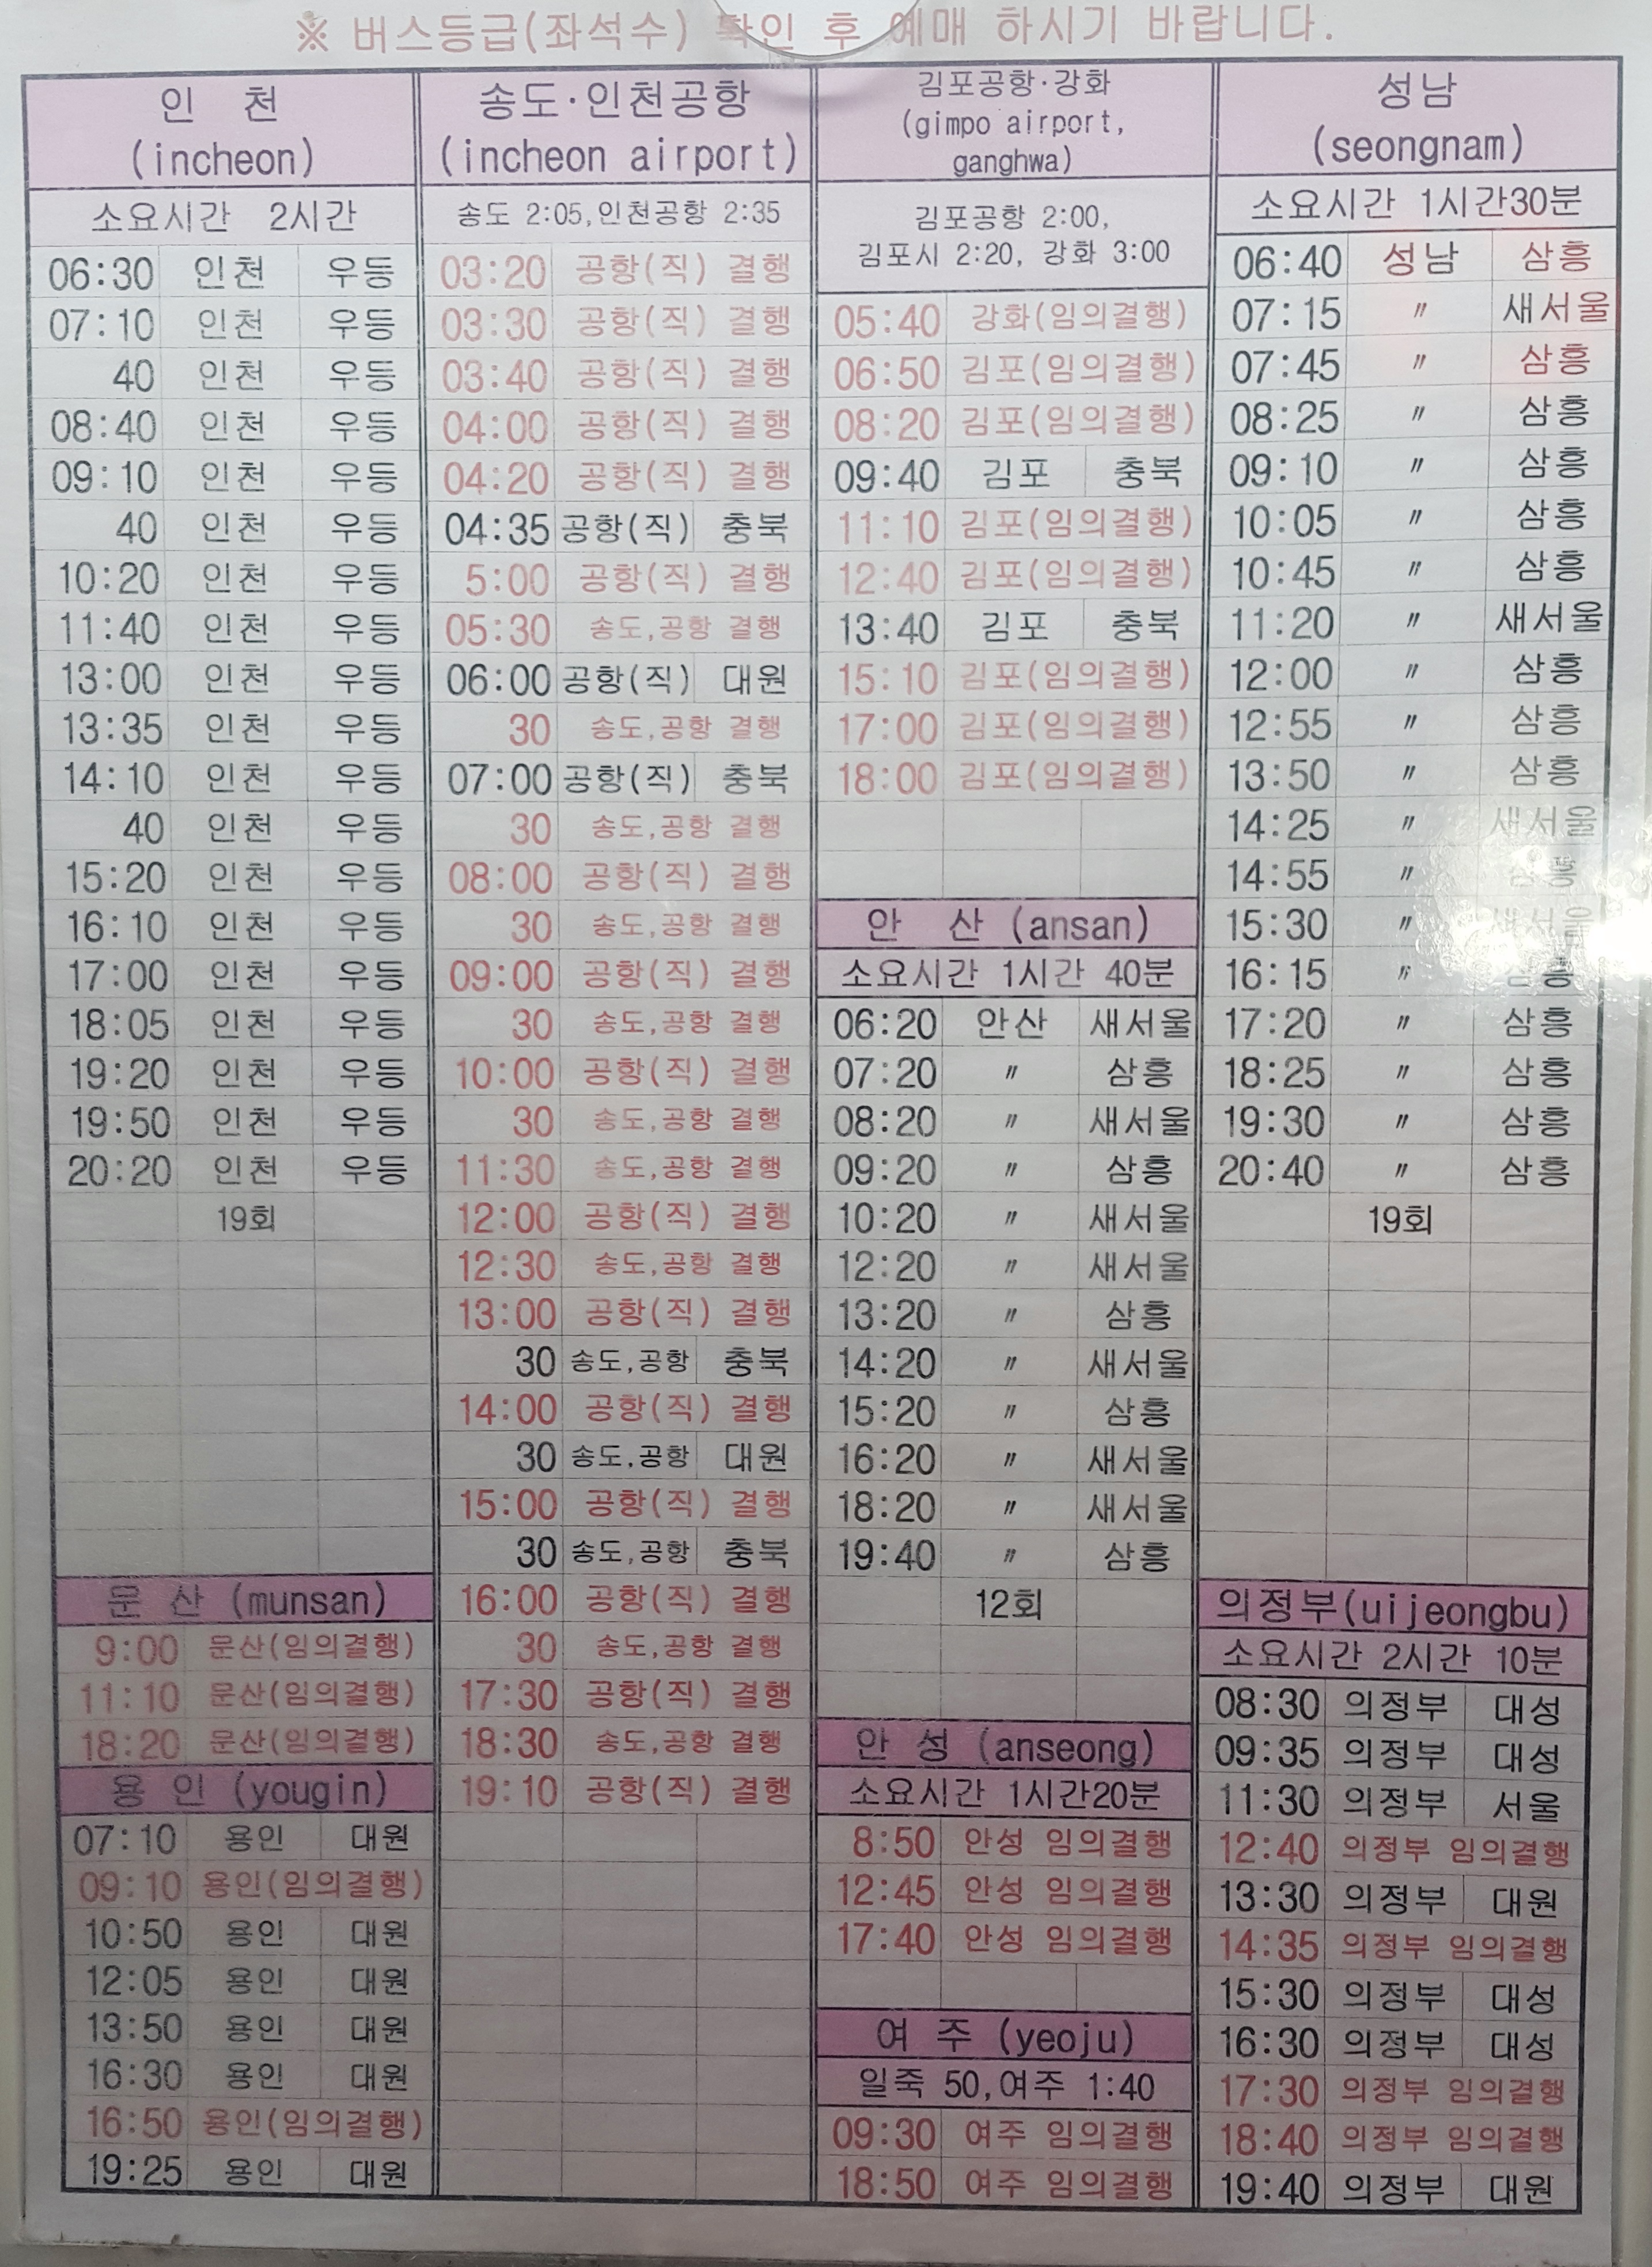 ※ 버스등급(좌석수) 확인 후 예매 하시기 바랍니다.
인 천
(incheon)
소요시간 2시간
06:30 인천 우등
07:10 인천 우등
40 인천 우등
08:40 인천 우등
09:10 인천 우등
40 인천 우등
10:20 인천 우등
11:40 인천 우등
13:00 인천 우등
13:35 인천 우등
14:10 인천 우등
40 인천 우등
15:20 인천 우등
16:10 인천 우등
17:00 인천 우등
18:05 인천 우등
19:20 인천 우등
19:50 인천 우등
20:20 인천 우등
19회
문 산 (munsan)
9:00 문산(임의결행)
11:10 문산(임의결행)
18:20 문산(임의결행)
용 인 (yougin)
07:10 용인 대원
09:10 용인(임의결행)
10:50 용인 대원
12:05 용인 대원
13:50 용인 대원
16:30 용인 대원
16:50 용인(임의결행)
19:25 용인 대원
송도·인천공항
(incheon airport)
송도 2:05,인천공항 2:35
03:20 공항(직) 결행
03:30 공항(직) 결행
03:40 공항(직) 결행
04:00 공항(직) 결행
04:20 공항(직) 결행
04:35 공항(직) 충북
5:00 공항(직) 결행
05:30 송도,공항 결행
06:00 공항(직) 대원
30 송도,공항 결행
07:00 공항(직) 충북
30 송도,공항 결행
08:00 공항(직) 결행
30 송도,공항 결행
09:00 공항(직) 결행
30 송도,공항 결행
10:00 공항(직) 결행
30 송도,공항 결행
11:30 송도,공항 결행
12:00 공항(직) 결행
12:30 송도,공항 결행
13:00 공항(직) 결행
30 송도,공항 충북
14:00 공항(직) 결행
30 송도,공항 대원
15:00 공항(직) 결행
30 송도,공항 충북
16:00 공항(직) 결행
30 송도,공항 결행
17:30 공항(직) 결행
18:30 송도,공항 결행
19:10 공항(직) 결행
김포공항·강화
(gimpo airport,
ganghwa)
김포공항 2:00,
김포시 2:20, 강화 3:00
05:40 강화(임의결행)
06:50 김포(임의결행)
08:20 김포(임의결행)
09:40 김포 충북
11:10 김포(임의결행)
12:40 김포(임의결행)
13:40 김포 충북
15:10 김포(임의결행)
17:00 김포(임의결행)
18:00 김포(임의결행)
안 산 (ansan)
소요시간 1시간 40분
06:20 안산 새서울
07:20 〃 삼흥
08:20 〃 새서울
09:20 〃 삼흥
10:20 〃 새서울
12:20 〃 새서울
13:20 〃 삼흥
14:20 〃 새서울
15:20 〃 삼흥
16:20 〃 새서울
18:20 〃 새서울
19:40 〃 삼흥
12회
안 성 (anseong)
소요시간 1시간20분
8:50 안성 임의결행
12:45 안성 임의결행
17:40 안성 임의결행
여 주 (yeoju)
일죽 50,여주 1:40
09:30 여주 임의결행
18:50 여주 임의결행
성남
(seongnam)
소요시간 1시간30분
06:40 성남 삼흥
07:15 〃 새서울
07:45 〃 삼흥
08:25 〃 삼흥
09:10 〃 삼흥
10:05 〃 삼흥
10:45 〃 삼흥
11:20 〃 새서울
12:00 〃 삼흥
12:55 〃 삼흥
13:50 〃 삼흥
14:25 〃 새서울
14:55 〃 삼흥
15:30 〃 새서울
16:15 〃 삼흥
17:20 〃 삼흥
18:25 〃 삼흥
19:30 〃 삼흥
20:40 〃 삼흥
19회
의정부(uijeongbu)
소요시간 2시간 10분
08:30 의정부 대성
09:35 의정부 대성
11:30 의정부 서울
12:40 의정부 임의결행
13:30 의정부 대원
14:35 의정부 임의결행
15:30 의정부 대성
16:30 의정부 대성
17:30 의정부 임의결행
18:40 의정부 임의결행
19:40 의정부 대원